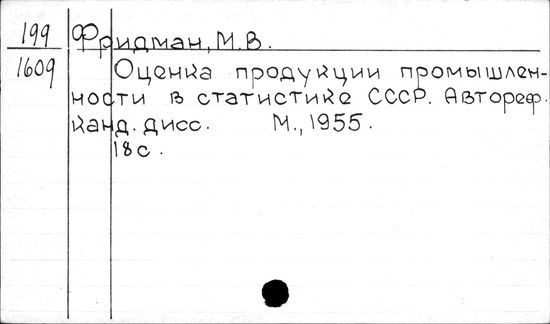 199 Фридман, М.В.
1609 Оценка продукции промышлен-
ности в статистике СССР. Автореф.
канд. дисс. М., 1955.
18с.